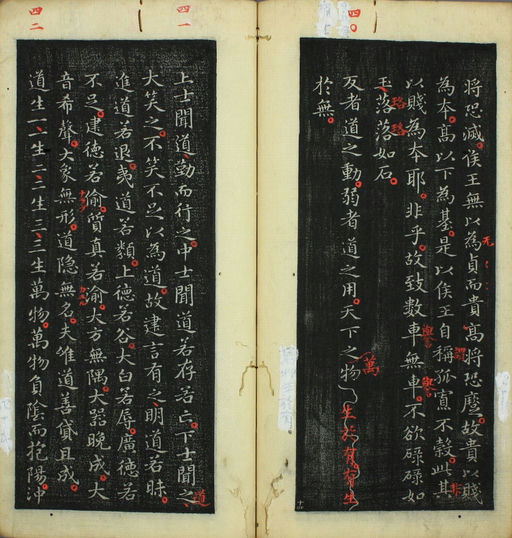 四〇
將恐滅侯王無以為貞而貴髙將恐蹷故貴以賤
无
為本髙以下為基是以侯王自稱孤寡不穀此其
謂
非
以賤為本耶非乎故致數車無車不欲碌碌如
譽
譽
玉落落如石
珞珞
反者道之動弱者道之用天下之物
萬
生於有有生
扵無
四一
上士聞道勤而行之中士聞道若存若亡下士聞之
道
大笑之不笑不足以為道故建言有之明道若昧
進道若退夷道若類上德若谷大白若辱廣德若
不足建德若偷質真若渝大方無隅大器晚成大
音希聲大象無形道隐無名夫唯道善貸且成
四二
道生一一生二二生三三生萬物萬物負陰而抱陽沖